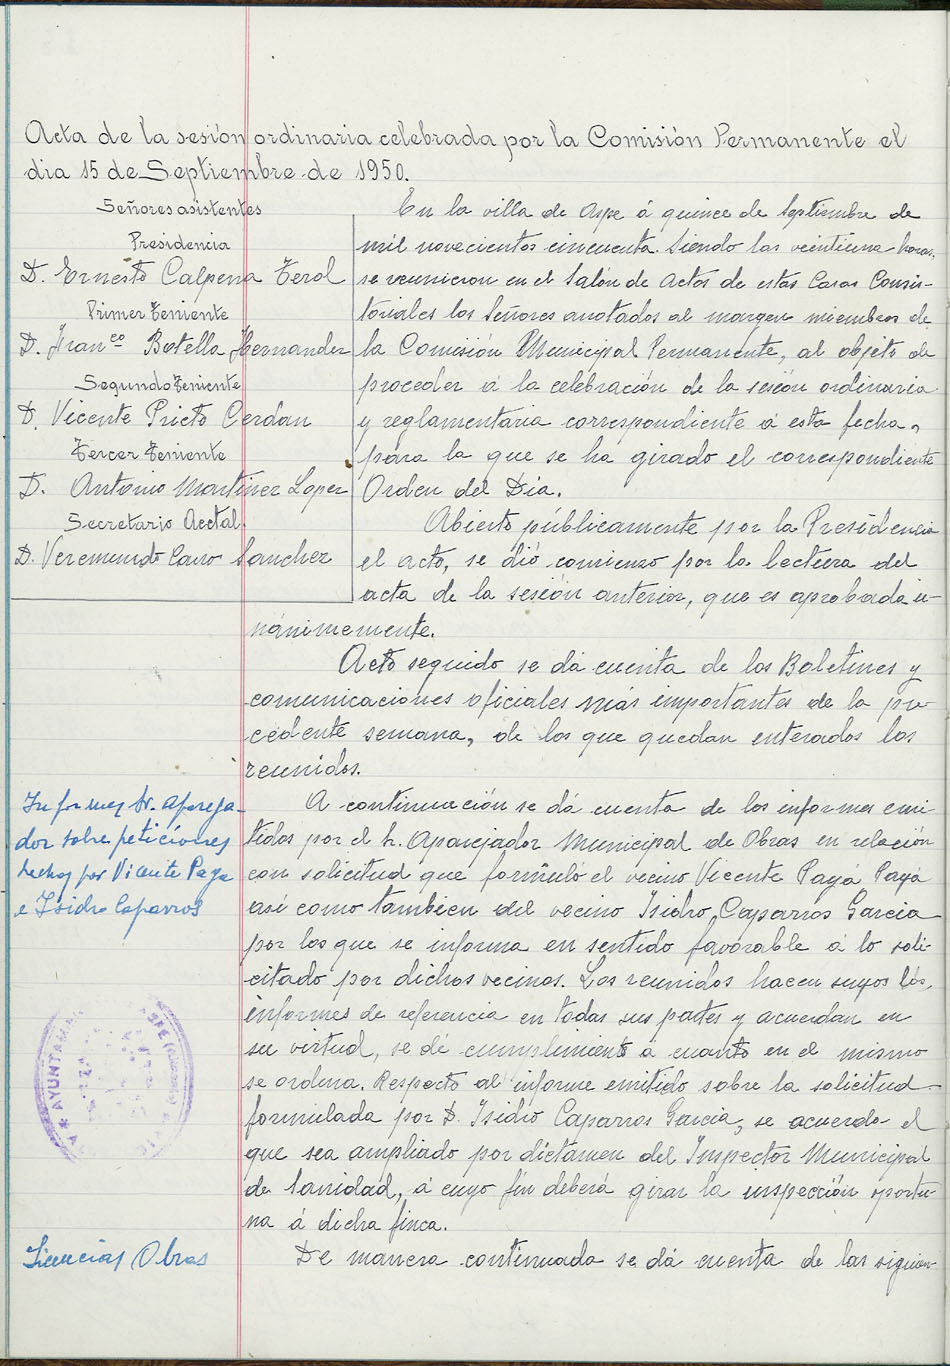 Acta de la sesión ordinaria celebrada por la Comisión Permanente el
dia 15 de Septiembre de 1950.
Señores asistentes
Presidencia
D. Ernesto Calpena Terol
Primer Teniente
D. Franco Botella Hernandez
Segundo Teniente
D. Vicente Prieto Cerdan
Tercer Teniente
D. Antonio Martinez Lopez
Secretario Acctal.
D. Veremundo Cano Sanchez
En la villa de Aspe á quince de Septiembre de
mil novecientos cincuenta. Siendo las veintiuna horas,
se reunieron en el Salón de actos de estas Casas Consis-
toriales los Señores anotados al margen miembros de
la Comisión Municipal Permanente, al objeto de
proceder á la celebración de la sesión ordinaria
y reglamentaria correspondiente á esta fecha,
para la que se ha girado el correspondiente
Orden del Dia.
Abierto públicamente por la Presidencia
el acto, se dió comienzo por la lectura del
acta de la sesión anterior, que es aprobada u-
nánimemente.
Acto seguido se dá cuenta de los Boletines y
comunicaciones oficiales más importantes de la pre-
cedente semana, de los que quedan enterados los
reunidos.
Informes Sr. Apareja-
dor sobre peticiones
hechas por Vicente Paya
e Isidro Caparros
A continuación se dá cuenta de los informes emi-
tidos por el Sr. Aparejador Municipal de Obras en relación
con solicitud que formuló el vecino Vicente Payá Payá
así como tambien del vecino Isidro Caparros Garcia
por los que se informa en sentido favorable á lo soli-
citado por dichos vecinos. Los reunidos hacen suyos los
informes de referencia en todas sus partes y acuerdan en
su virtud, se dé cumplimiento á cuanto en el mismo
se ordena. Respecto al informe emitido sobre la solicitud
formulada por D. Isidro Caparros Garcia, se acuerda el
que sea ampliado por dictamen del Inspector Municipal
de Sanidad, á cuyo fin deberá girar la inspección oportu-
na á dicha finca.
AYUNTAM
ASPE
Licencias Obras
De manera continuada se dá cuenta de las siguien-